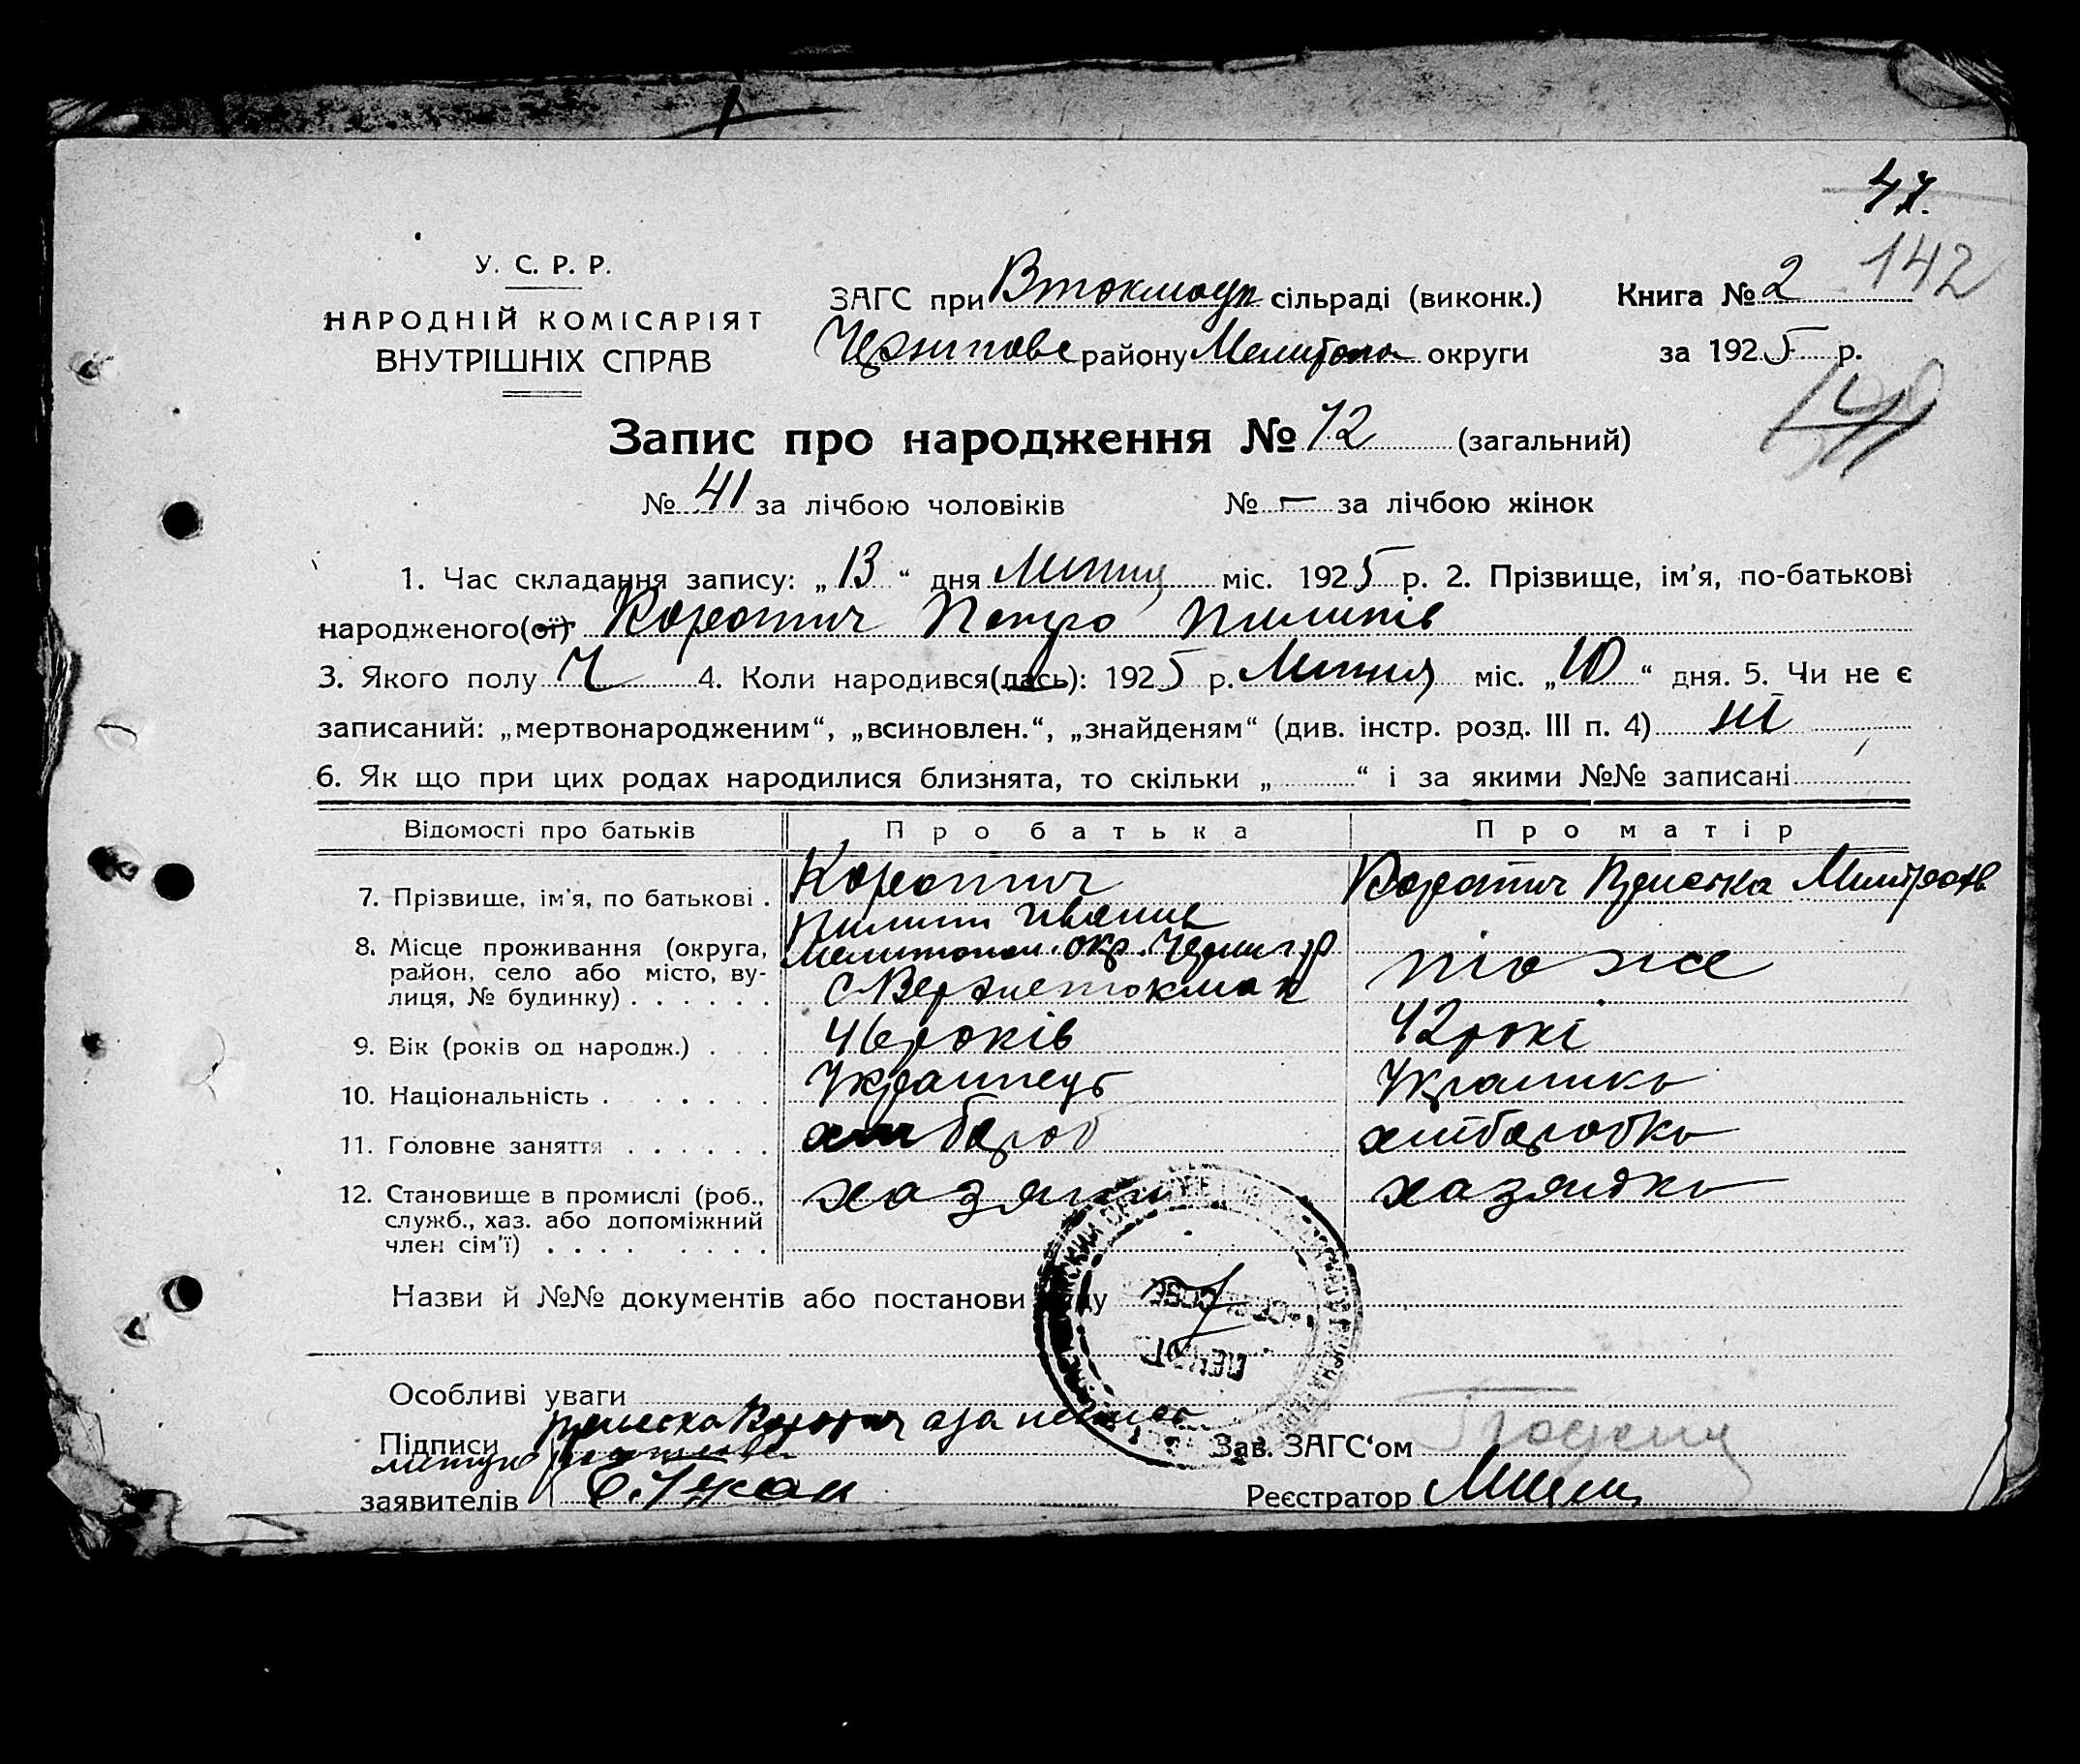 47.
142
У. С. Р. Р.
НАРОДНІЙ КОМІСАРІЯТ
ВНУТРІШНІХ СПРАВ
ЗАГС при Втокмацк сільраді (виконк.) Книга № 2
Чернігове району Мелитопо округи за 1925 р.
Запис про народження № 72 (загальний)
№ 41 за лічбою чоловіків № – за лічбою жінок
1. Час складання запису: „13“ дня Липня міс. 1925 р. 2. Прізвище, ім'я, по-батькові
народженого(ої) Коротич Петро Пилипів
3. Якого полу Ч 4. Коли народився(лась): 1925 р. Липня міс. „10“ дня. 5. Чи не є
записаний: „мертвонародженим“, „всиновлен.“, „знайденям“ (див. інстр. розд. III п. 4) ні
6. Як що при цих родах народилися близнята, то скільки „ “ і за якими №№ записані
Відомості про батьків Про батька Про матір
7. Прізвище, ім'я, по батькові . Коротич Пилип Іванів Коротич Христка Митров
8. Місце проживання (округа, район, село або місто, вулиця, № будинку) . . . . . . Мелитопол. окр. Черниг р с Верхнетокмак тіо же
9. Вік (років од народж.) . . . 46 років 42 рокі
10. Національність . . . . . . . Украінець Украінка
11. Головне заняття . . . . . . хлібороб хліборобка
12. Становище в промислі (роб., служб., хаз. або допоміжний член сім'ї) . . . . . . . . хазяін хазяйка
Назви й №№ документів або постанови суду
Особливі уваги
Христка Коротич а за
Підписи
заявителів
Зав. ЗАГС‘ом
Реєстратор